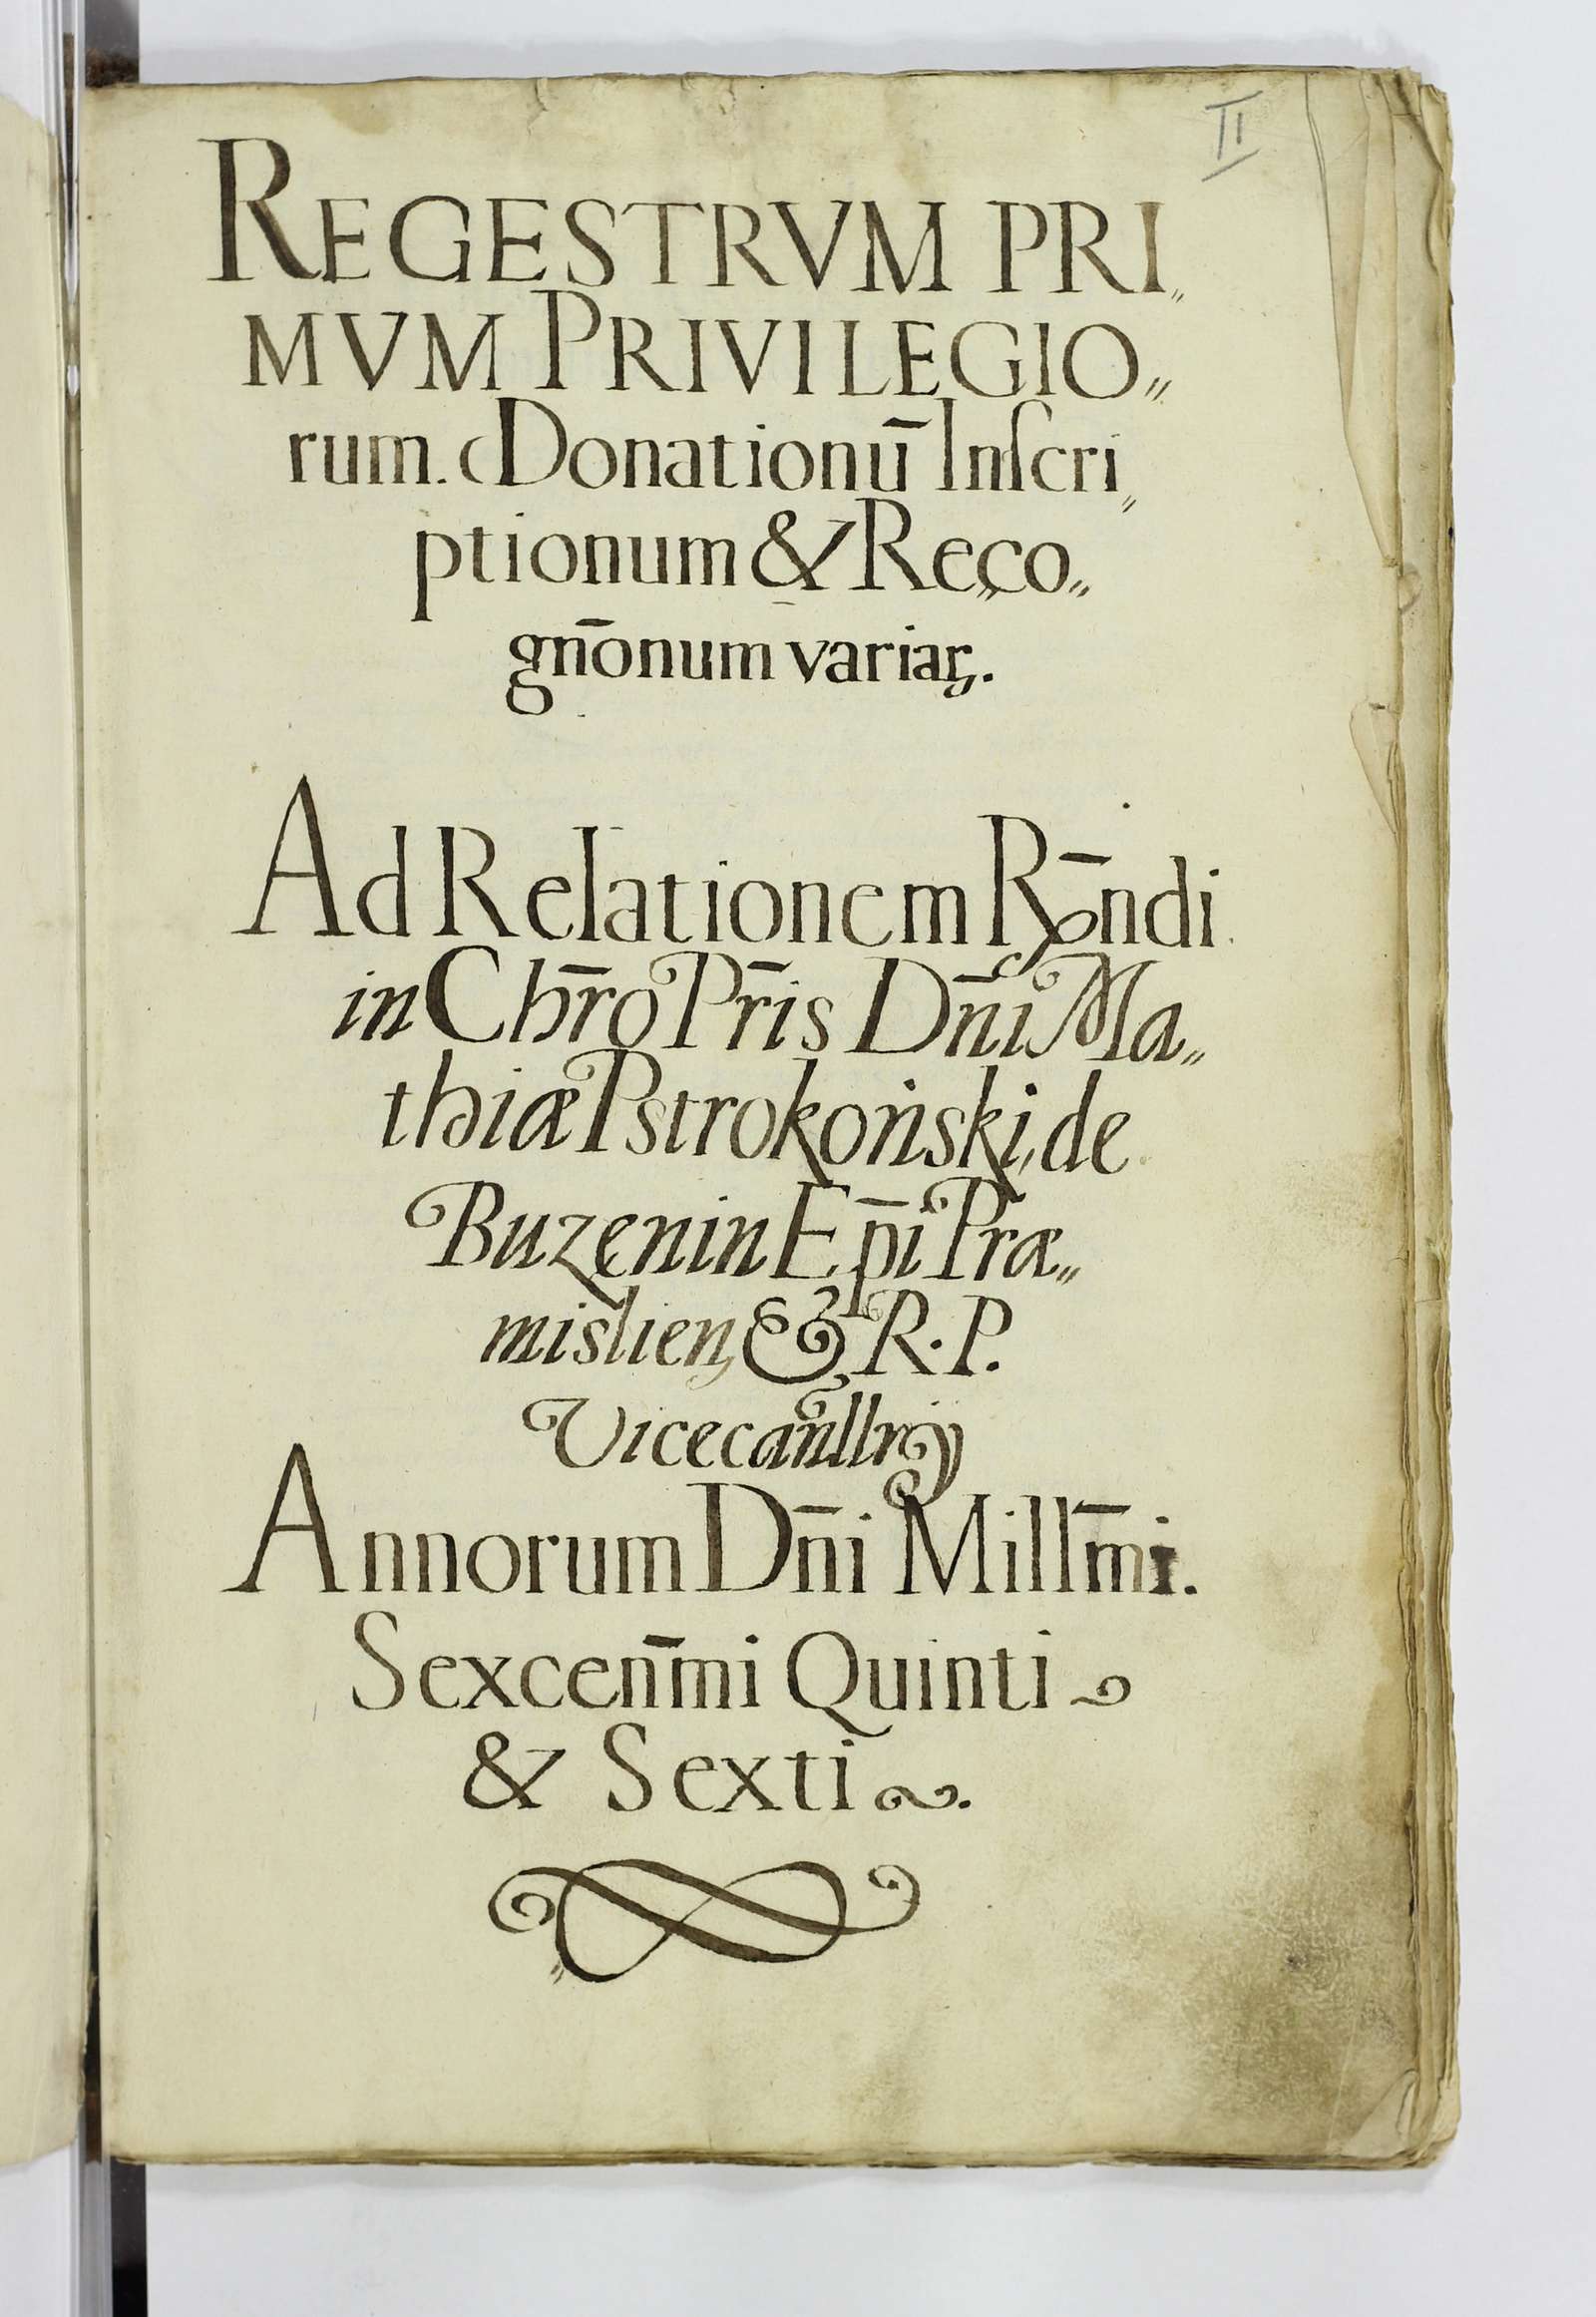 II
REGESTRVM PRI„
MVM PRIVILEGIO„
rum. Donationū Inſcri„
ptionum & Reco„
gn̄onum variaꝝ.
Ad Relationem Rn̄di
in Chr̄o Pr̄is Dn̄i Ma„
thiæ Pstrokoński, de
Buzenin Ep̄i Præ„
mislien, & R. P.
Vicecan̄llrij
Annorum Dn̄i Millm̄i.
Sexcen̄m̄i Quinti
& Sexti.